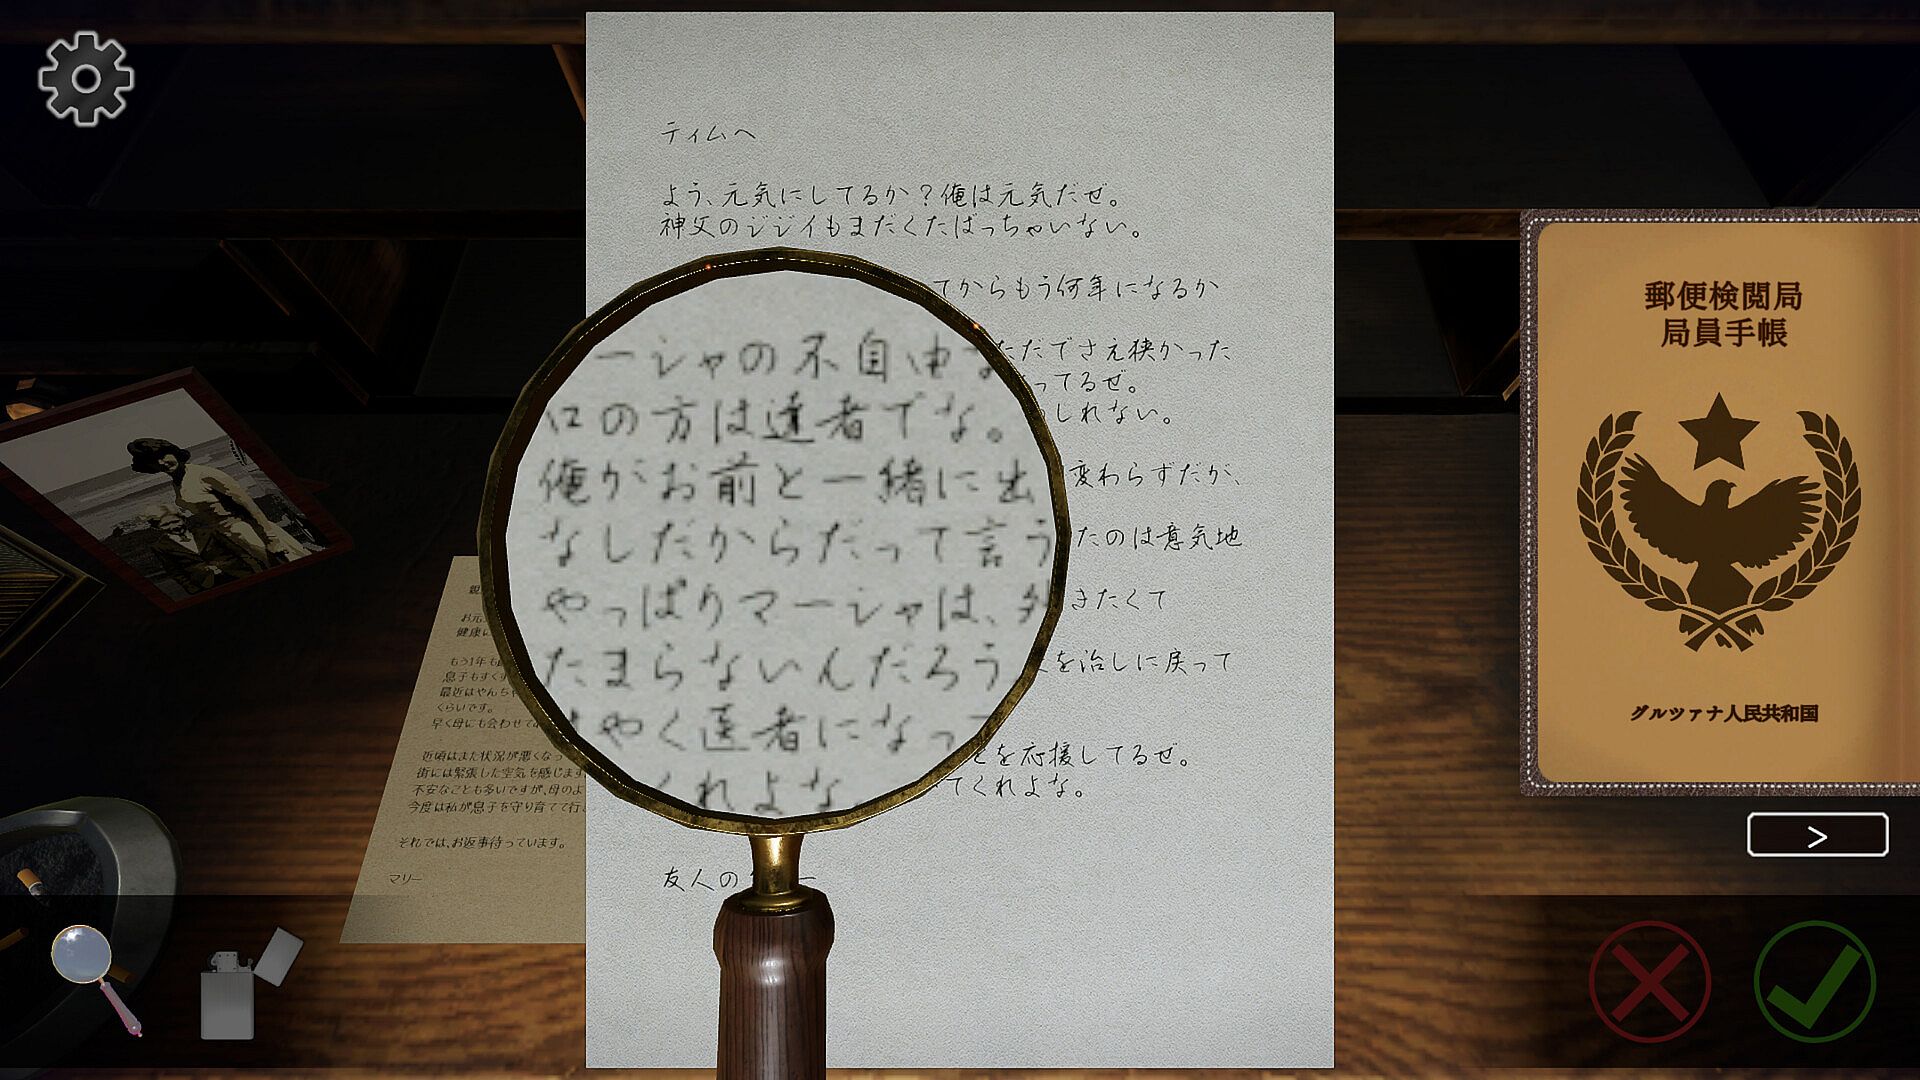 ティムへ
よう、元気にしてるか？俺は元気だぜ。
神父のジジイもまだくたばっちゃいない。
てからもう何年になるか
ーシャの不自由な
ただでさえ狭かった
ってるぜ。
口の方は達者でな。
しれない。
俺がお前と一緒に出
変わらずだが、
なしだからだって言う
たのは意気地
やっぱりマーシャは、
きたくて
たまらないんだろう
を治しに戻って
やく医者になっ
とを応援してるぜ。
くれよな。
てくれよな。
友人の
お元
健康に
もう1年も
息子もすくす
最近はやんちゃ
くらいです。
早く母にも会わせて
近頃はまた状況が悪くなっ
街には緊張した空気を感じます
不安なことも多いですが、母のよ
今度は私が息子を守り育てて行
それでは、お返事待っています。
マリー
郵便検閲局
局員手帳
グルツァナ人民共和国
>